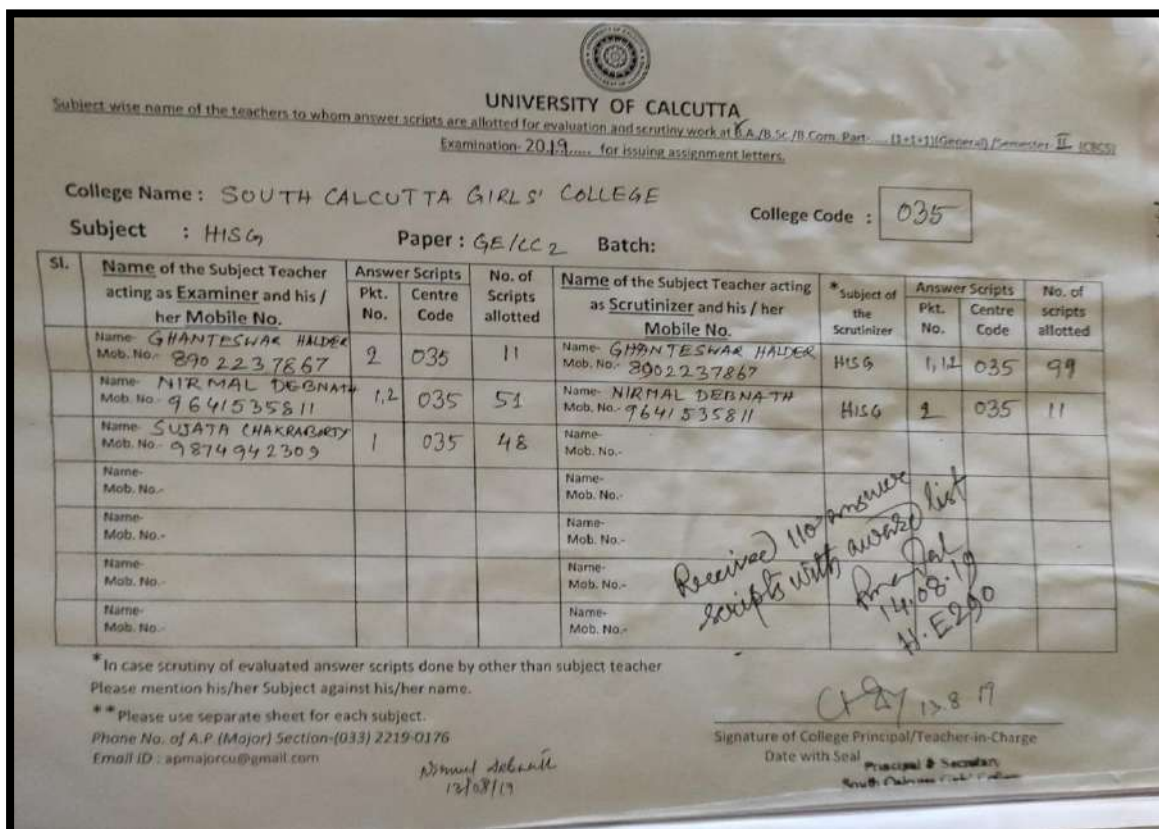 UNIVERSITY OF CALCUTTA
Subject wise name of the teachers to whom answer scripts are allotted for evaluation and scrutiny work at B.A./B.Sc./B.Com. Part- .... (1+1+1)(General) /Semester- II (CBCS)
Examination- 2019..... for issuing assignment letters.
College Name : SOUTH CALCUTTA GIRLS' COLLEGE
College Code : 035
Subject : HISG Paper : GE/CC2 Batch:
Sl. Name of the Subject Teacher acting as Examiner and his / her Mobile No. Answer Scripts Pkt. No. Centre Code No. of Scripts allotted Name of the Subject Teacher acting as Scrutinizer and his / her Mobile No. *Subject of the Scrutinizer Answer Scripts Pkt. No. Centre Code No. of scripts allotted
Name- GHANTESWAR HALDER 2 035 11 Name- GHANTESWAR HALDER HISG 1,12 035 99
Mob. No.- 8902237867 Mob. No.- 8902237867
Name- NIRMAL DEBNATH 1,2 035 51 Name- NIRMAL DEBNATH HISG 2 035 11
Mob. No.- 9641535811 Mob. No.- 9641535811
Name- SUJATA CHAKRABARTY 1 035 48 Name-
Mob. No.- 9874942309 Mob. No.-
Name- Name-
Mob. No.- Mob. No.-
Name- Name-
Mob. No.- Mob. No.-
Name- Name-
Mob. No.- Mob. No.-
Name- Name-
Mob. No.- Mob. No.-
Received 110 answer
scripts with award list
14.08.19
H.E290
*In case scrutiny of evaluated answer scripts done by other than subject teacher
Please mention his/her Subject against his/her name.
**Please use separate sheet for each subject.
Phone No. of A.P (Major) Section-(033) 2219-0176
Email ID : apmajorcu@gmail.com
Nirmal Debnath
13/08/19
13.8.19
Signature of College Principal/Teacher-in-Charge
Date with Seal
Principal & Secretary
South Calcutta Girls' College